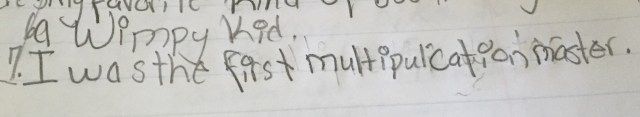 my favorite kind of
Wimpy Kid.
7. I was the first multipulication master.